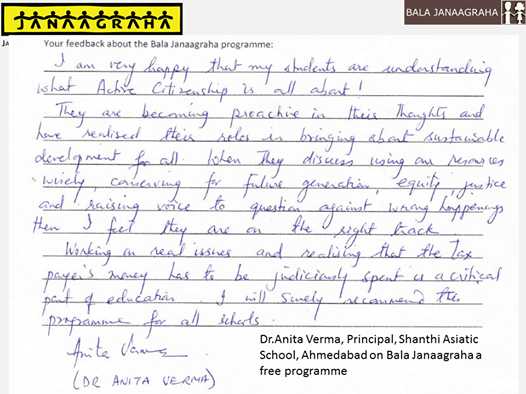 JANAAGRAHA
BALA JANAAGRAHA
JA
Your feedback about the Bala Janaagraha programme:
I am very happy that my students are understanding
what Active Citizenship is all about!
They are becoming preachive in their thoughts and
have realised their roles in bringing about sustainable
development for all. When they discuss using our resources
wisely, conserving for future generation, equity, justice
and raising voice to question against wrong happenings
then I feel they are on the right track
Working on real issues and realising that the Tax
payer's money has to be judiciously spent is a critical
part of education. I will surely recommend this
programme for all schools.
Anita Verma
(DR ANITA VERMA)
Dr.Anita Verma, Principal, Shanthi Asiatic
School, Ahmedabad on Bala Janaagraha a
free programme